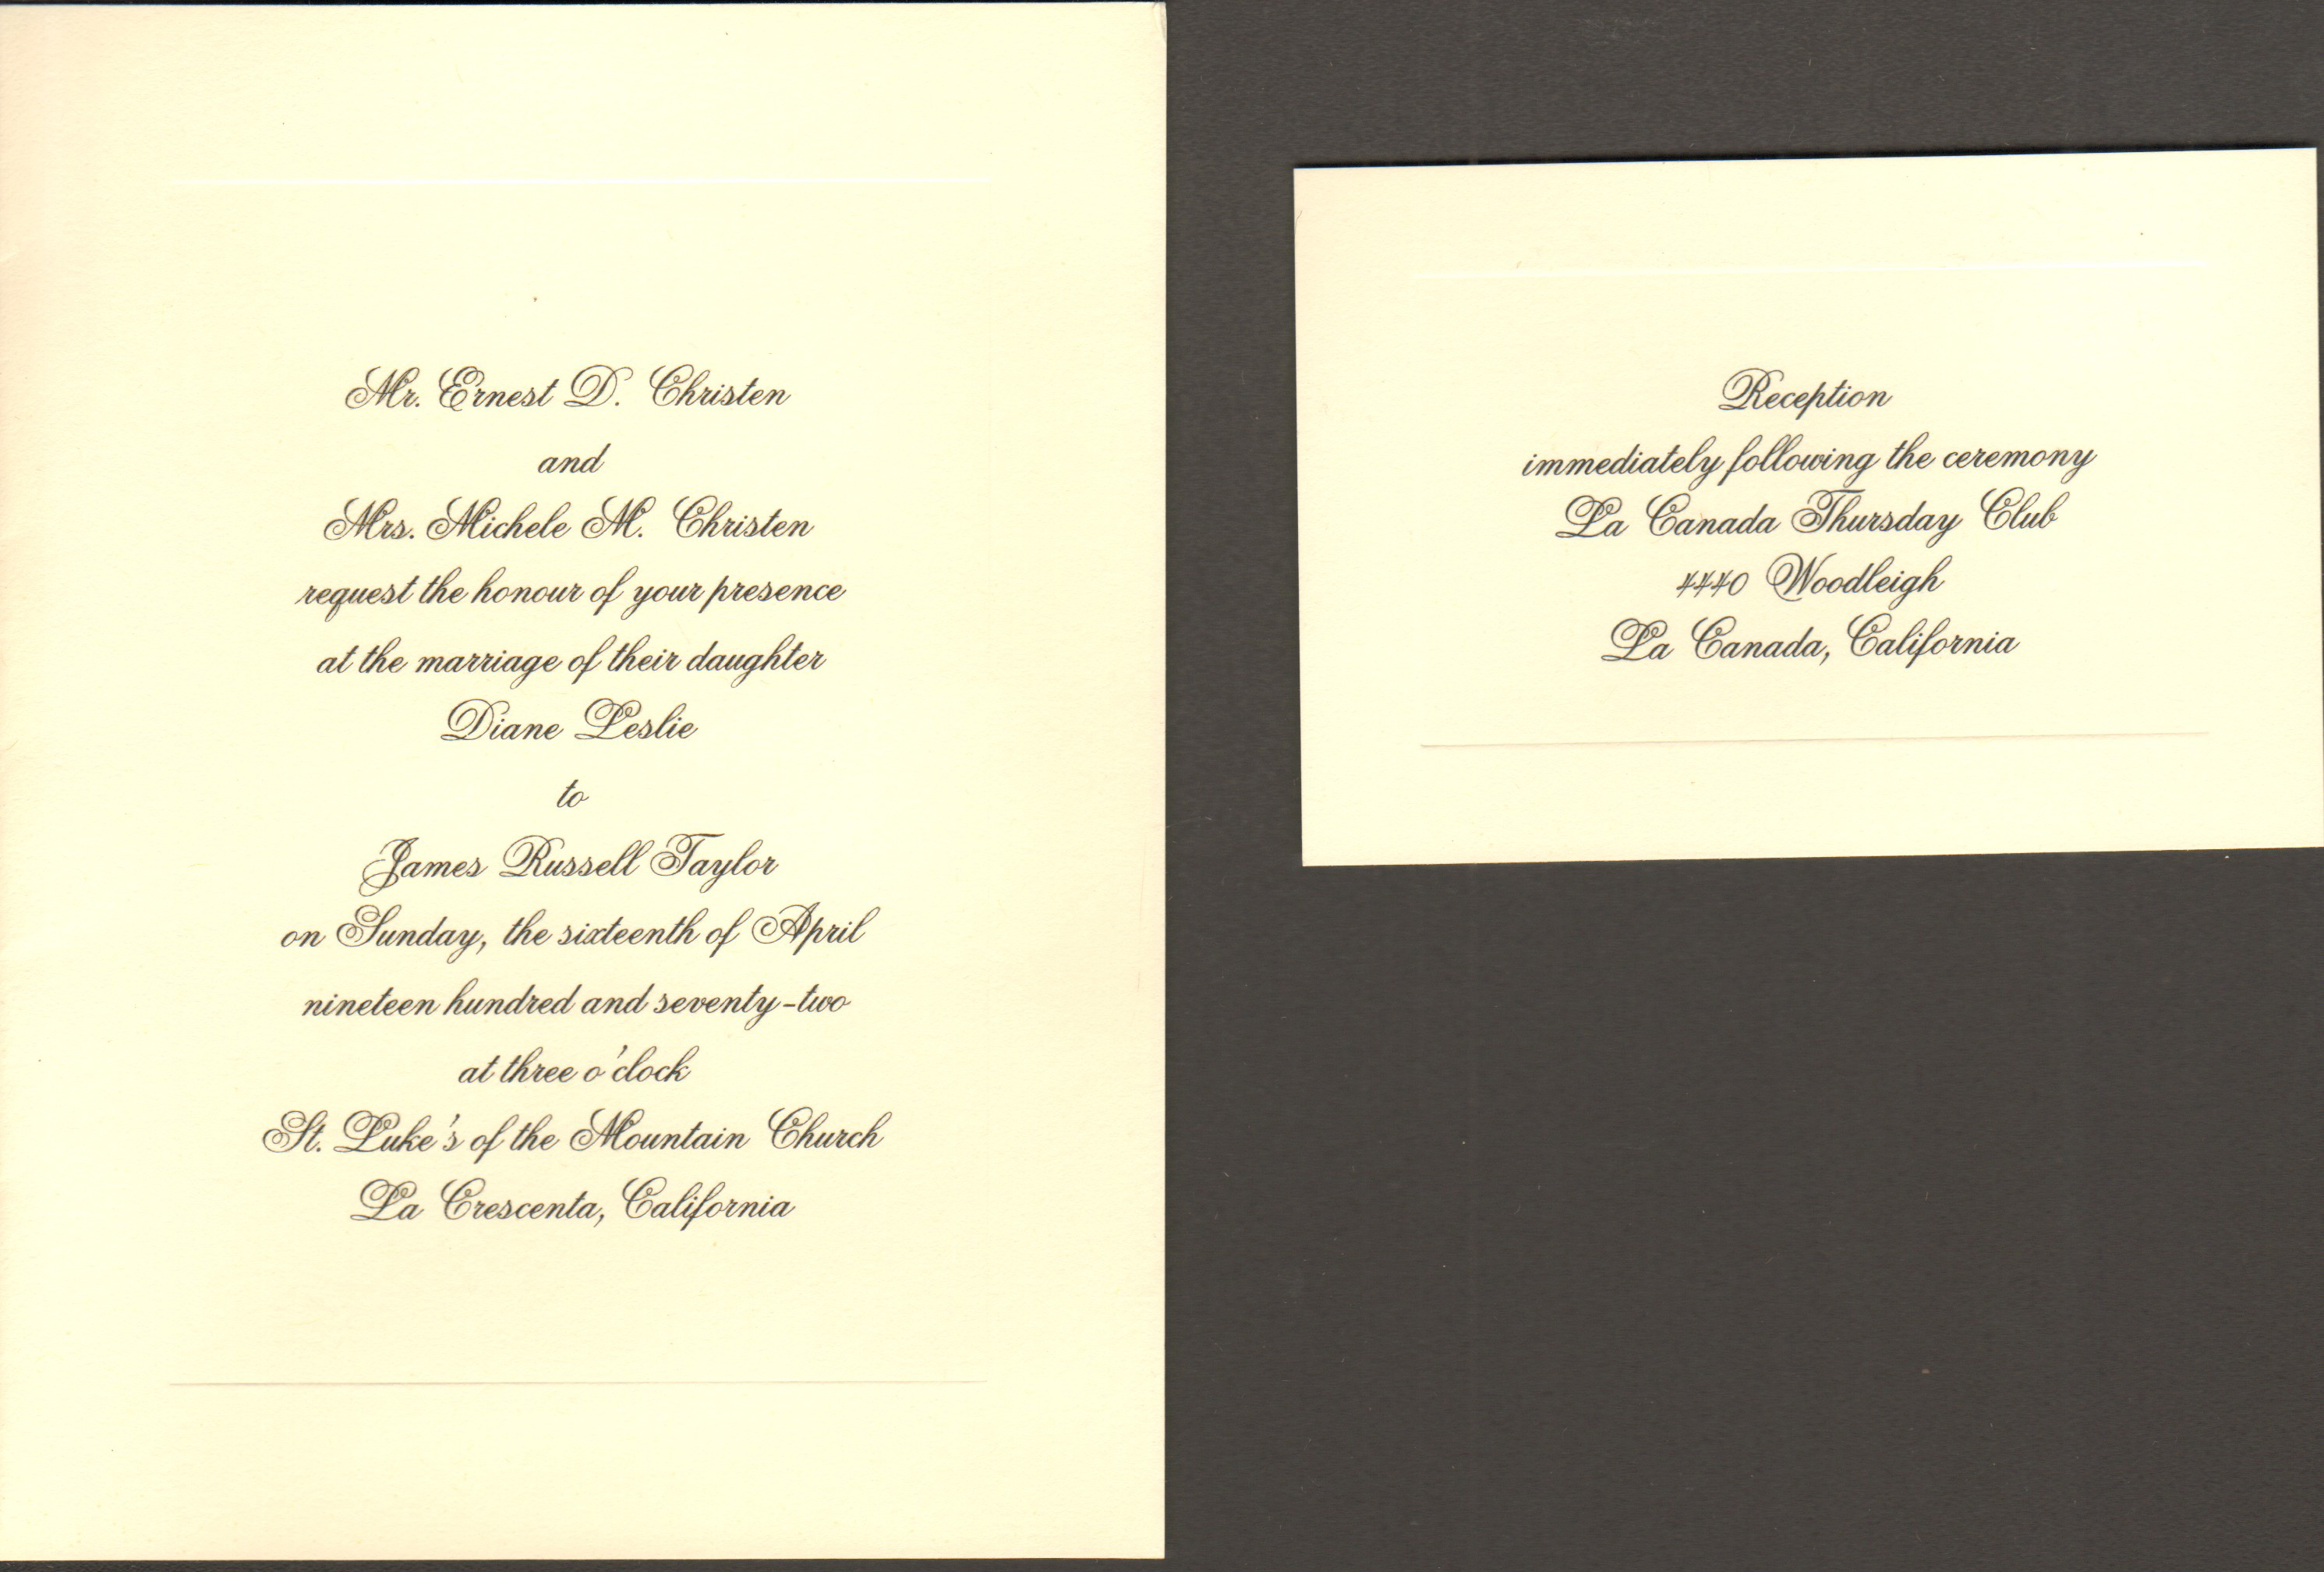 Mr. Ernest D. Christen
and
Mrs. Michele M. Christen
request the honour of your presence
at the marriage of their daughter
Diane Leslie
to
James Russell Taylor
on Sunday, the sixteenth of April
nineteen hundred and seventy-two
at three o'clock
St. Luke's of the Mountain Church
La Crescenta, California
Reception
immediately following the ceremony
La Canada Thursday Club
4440 Woodleigh
La Canada, California